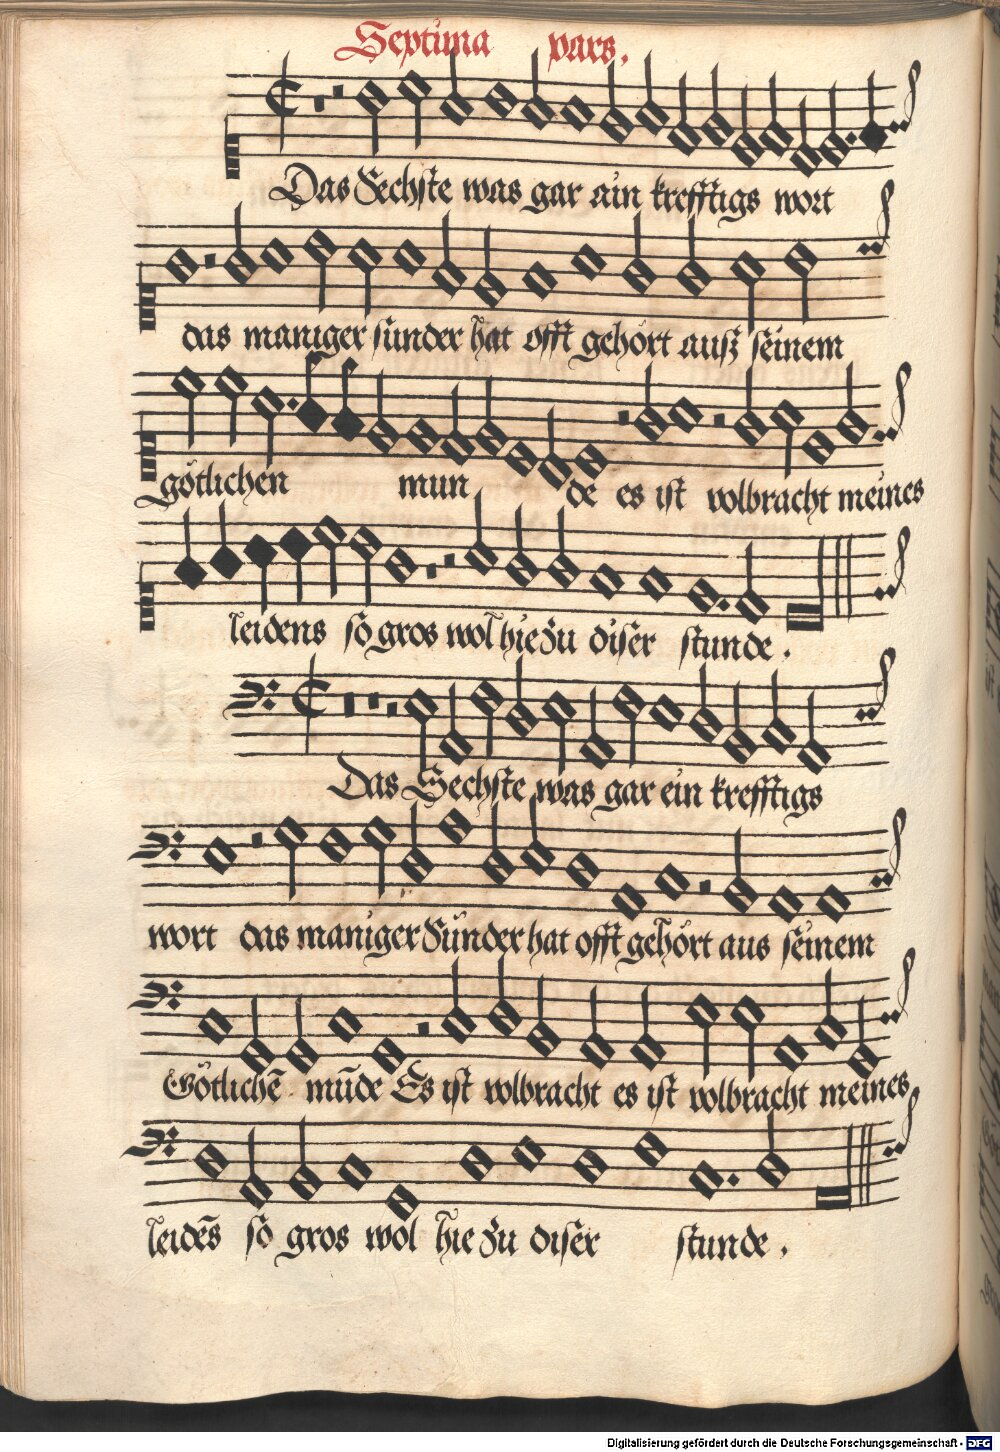 Septima pars.
Das Sechste was gar ain krefftigs wort
das maniger sünder hat offt gehört ausz seinem
götlichen mun de es ist volbracht meines
leidens so gros wol hie zu diser stunde.
Das Sechste was gar ein krefftigs
wort das maniger Sünder hat offt gehört aus seinem
Götlichē mūde Es ist volbracht es ist volbracht meines
leidēs so gros wol hie zu diser stunde.
Digitalisierung gefördert durch die Deutsche Forschungsgemeinschaft - DFG